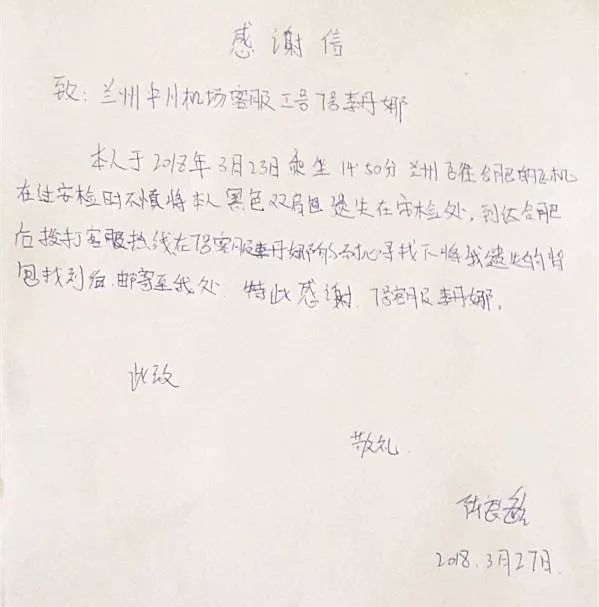 感谢信
致：兰州中川机场客服工号78李丹娜
本人于2018年3月23日乘坐14:50分兰州飞往合肥的飞机
在过安检时不慎将本人黑色双肩包遗失在安检处，到达合肥
后拨打客服热线在78客服李丹娜的耐心寻找下将我遗失的背
包找到后邮寄至我处．特此感谢．78客服李丹娜．
此致
敬礼
2018.3月27日．